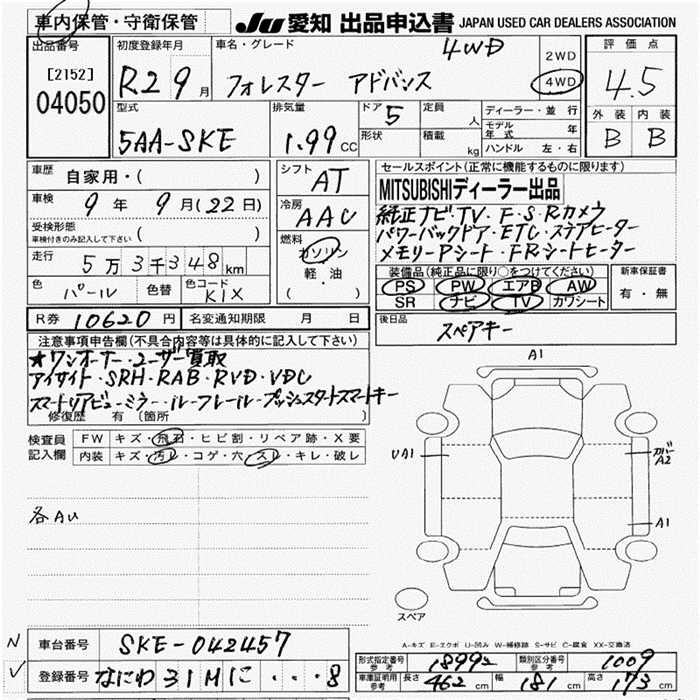 車内保管・守衛保管
JU 愛知 出品申込書 JAPAN USED CAR DEALERS ASSOCIATION
出品番号 初度登録年月 車名・グレード 4WD 2WD 評価点
[2152] R2 9月 フォレスター アドバンス 4WD 4.5
04050
型式 排気量 ドア 5 定員 人 ディーラー・並行 外装 内装
5AA-SKE 1.99 CC 形状 積載 kg モデル年式 年 B B
ハンドル 左・右
車歴 自家用・( ) シフト AT セールスポイント(正常に機能するものに限ります)
車検 9年 9月(22日) 冷房 AAC MITSUBISHIディーラー出品
受検形態 ( ) 純正ナビ・TV・F・S・Rカメラ
車検付きのみ記入して下さい 燃料 ガソリン パワーバックドア・ETC・ステアヒーター
走行 5万3千348km 軽・油 メモリーPシート・FRシートヒーター
色 パール 色替 色コード K1X ・( ) 装備品(純正品に限り○をつけてください) 新車保証書
PS PW エアB AW 有・無
SR ナビ TV カワシート
R券 10620円 名変通知期限 月 日 後日品 スペアキー
注意事項申告欄(不具合内容等は具体的に記入して下さい)
★ワンオーナー・ユーザー買取
アイサイト・SRH・RAB・RVD・VDC
スマートリアビューミラー・ルーフレール・プッシュスタートスマートキー
修復歴 有 〔箇所 〕
検査員 FW キズ・飛石・ヒビ割・リペア跡・X要
記入欄 内装 キズ・汚レ・コゲ・穴・スレ・キレ・破レ
A1
UA1
A2
各AU A1
スペア
A-キズ E-エクボ U-凹み W-補修跡 S-サビ C-腐食 XX-交換済
N 車台番号 SKE-042457 形式指定番号 参考 18992 類別区分番号 参考 1009
V 登録番号 なにわ 31Mに・・・8 車庫証明用 参考 長さ 462 cm 幅 181 cm 高さ 173 cm